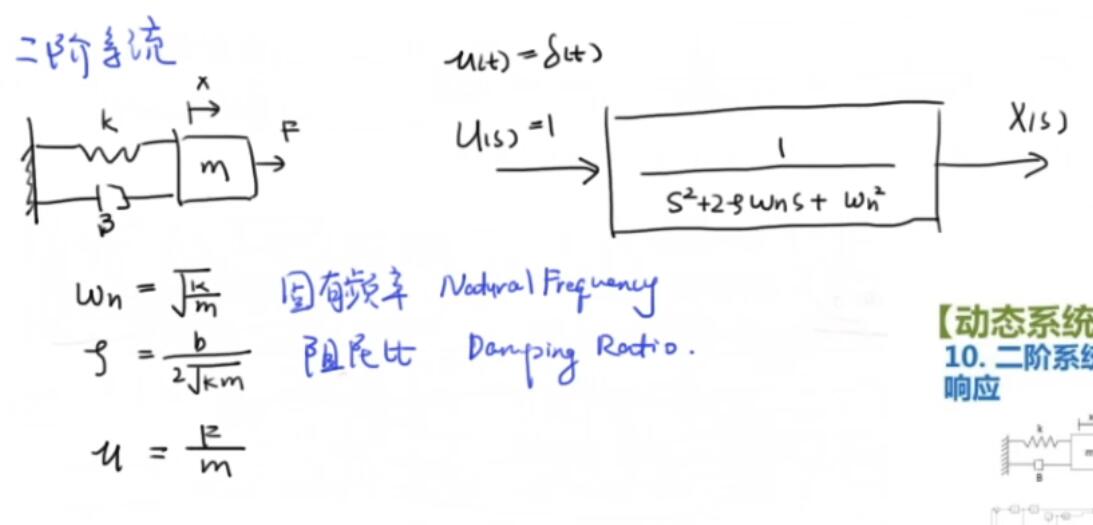 二阶系流
k
x
F
m
B
u(t)=δ(t)
U(s)=1
1
S²+2ζωnS+ωn²
X(s)
ωn = √k/m 固有频率 Natural Frequency
ζ = b/2√km 阻尼比 Damping Ratio.
u = F/m
【动态系统
10. 二阶系统
响应
k
m
B